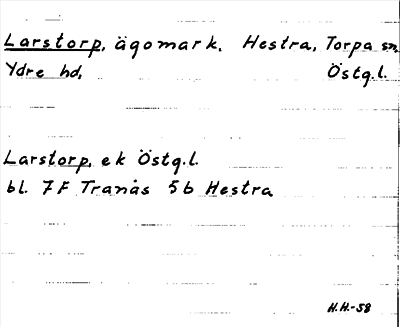 Larstorp, ägomark, Hestra, Torpa sn,
Ydre hd, Östg.l.
Larstorp, ek Östg.l.
bl. 7F Tranås 5b Hestra
H.H.-58